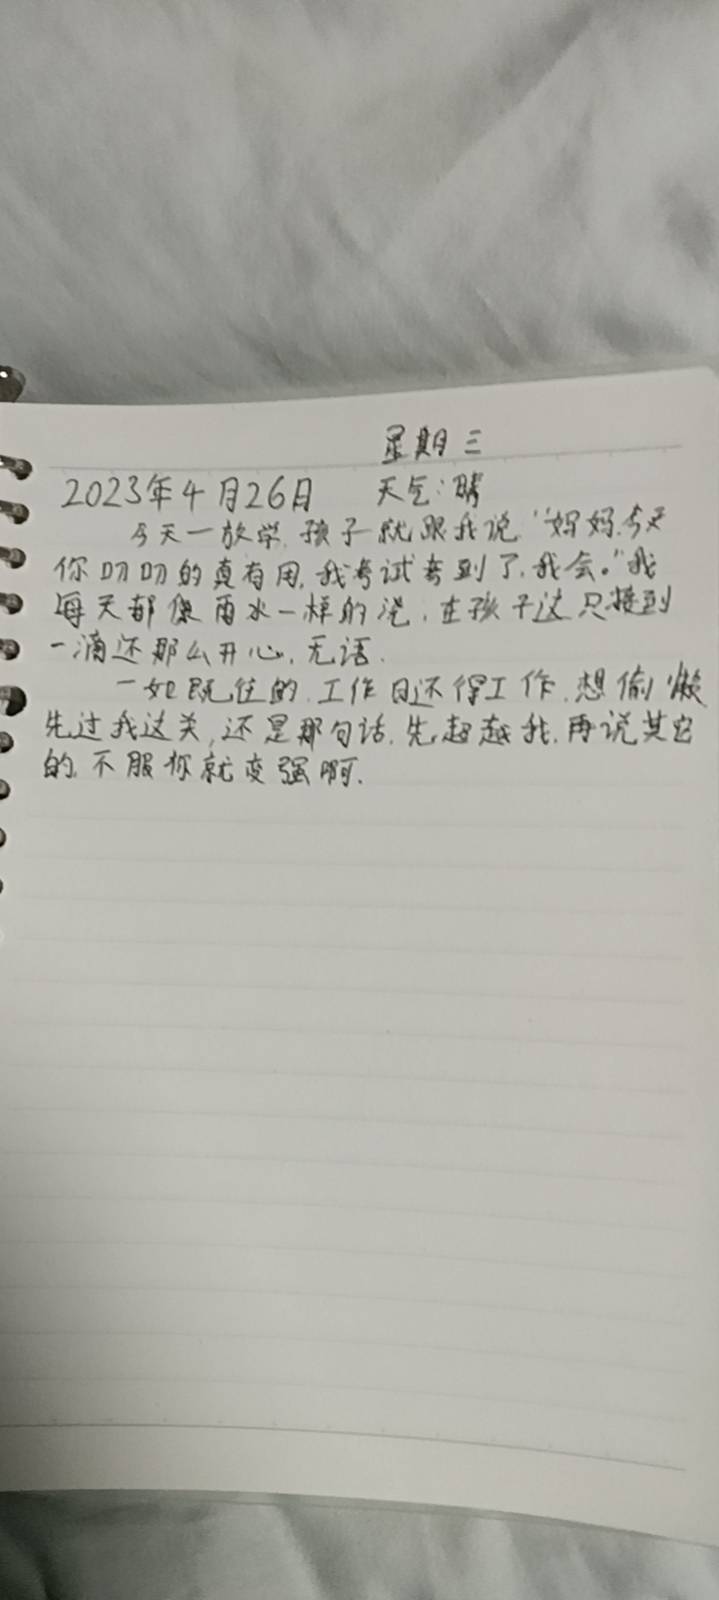 星期三
2023年4月26日 天气:晴
今天一放学,孩子就跟我说"妈妈,今天
你叨叨的真有用,我考试考到了,我会。"我
每天都像雨水一样的浇,在孩子这只接到
一滴还那么开心,无语.
一如既往的,工作日还得工作,想偷懒
先过我这关,还是那句话,先超越我,再说其它
的,不服你就变强啊.